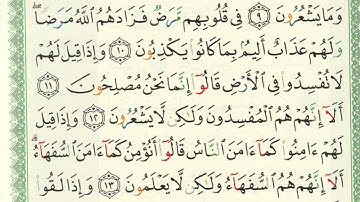 وَمَا يَشْعُرُونَ ٩ فِي قُلُوبِهِم مَّرَضٌ فَزَادَهُمُ اللَّهُ مَرَضًا
وَلَهُمْ عَذَابٌ أَلِيمٌ بِمَا كَانُوا يَكْذِبُونَ ١٠ وَإِذَا قِيلَ لَهُمْ
لَا تُفْسِدُوا فِي الْأَرْضِ قَالُوا إِنَّمَا نَحْنُ مُصْلِحُونَ ١١
أَلَا إِنَّهُمْ هُمُ الْمُفْسِدُونَ وَلَٰكِن لَّا يَشْعُرُونَ ١٢ وَإِذَا قِيلَ
لَهُمْ ءَامِنُوا كَمَا ءَامَنَ النَّاسُ قَالُوا أَنُؤْمِنُ كَمَا ءَامَنَ السُّفَهَاءُ ۗ
أَلَا إِنَّهُمْ هُمُ السُّفَهَاءُ وَلَٰكِن لَّا يَعْلَمُونَ ١٣ وَإِذَا لَقُوا